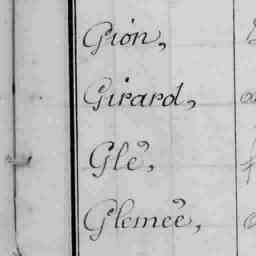 Gion,
Girard,
Glé,
Glemée,